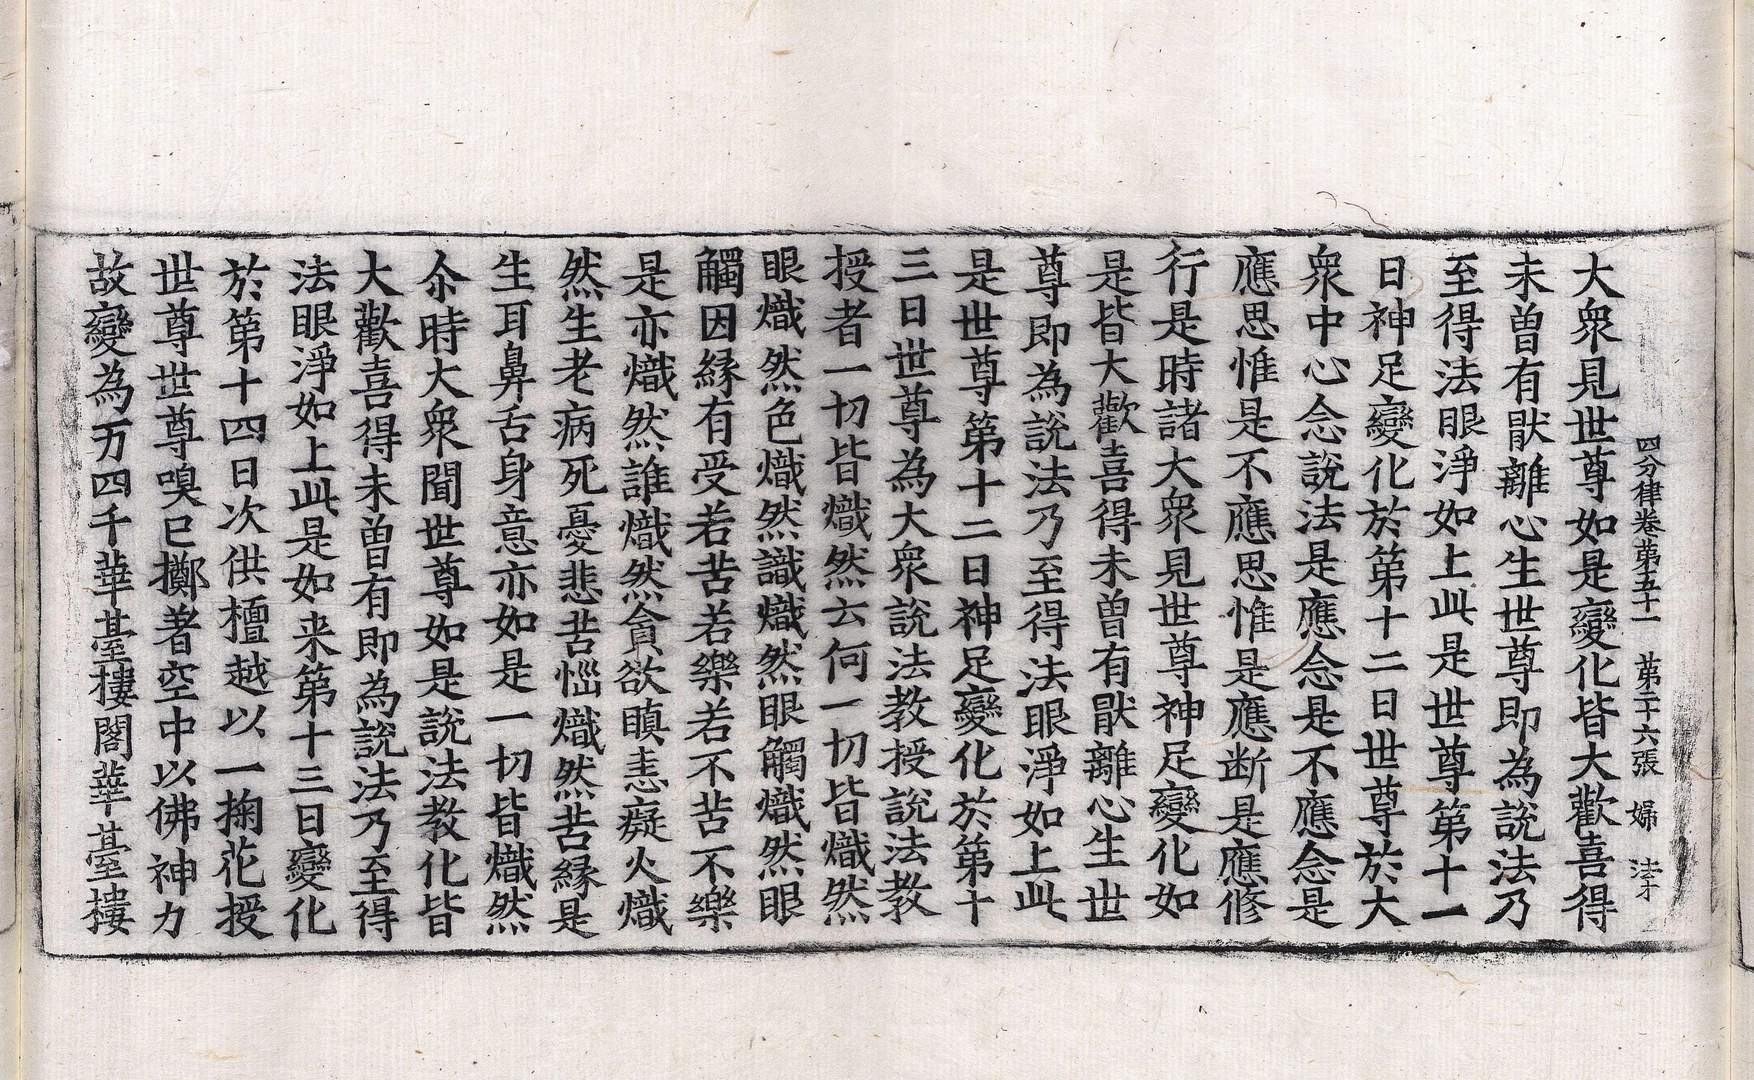 四分律卷第五十一　第二十六張　婦　法才
大衆見世尊如是變化皆大歡喜得
未曾有猒離心生世尊即為說法乃
至得法眼淨如上此是世尊第十一
日神足變化於第十二日世尊於大
衆中心念說法是應念是不應念是
應思惟是不應思惟是應断是應修
行是時諸大衆見世尊神足變化如
是皆大歡喜得未曾有猒離心生世
尊即為說法乃至得法眼淨如上此
是世尊第十二日神足變化於第十
三日世尊為大衆說法教授說法教
授者一切皆熾然云何一切皆熾然
眼熾然色熾然識熾然眼觸熾然眼
觸因緣有受若苦若樂若不苦不樂
是亦熾然誰熾然貪欲瞋恚癡火熾
然生老病死憂悲苦惱熾然苦緣是
生耳鼻舌身意亦如是一切皆熾然
尒時大衆聞世尊如是說法教化皆
大歡喜得未曾有即為說法乃至得
法眼淨如上此是如来第十三日變化
於第十四日次供檀越以一掬花授
世尊世尊嗅已擲著空中以佛神力
故變為万四千華臺樓閣華臺樓